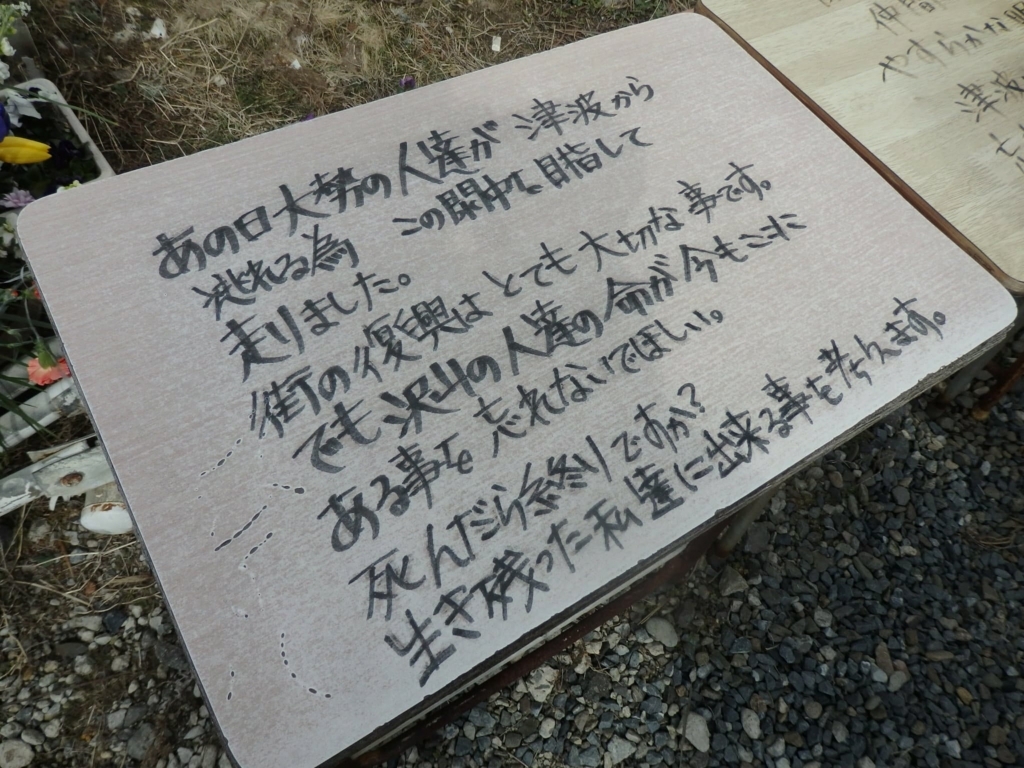 あの日大勢の人達が 津波から
逃れる為 この閖中を目指して
走りました。
街の復興は とても大切な事です。
でも沢山の人達の命が今もここに
ある事を 忘れないでほしい。
死んだら終りですか?
生き残った私達に出来る事を考えます。
やすらかな眠
津波